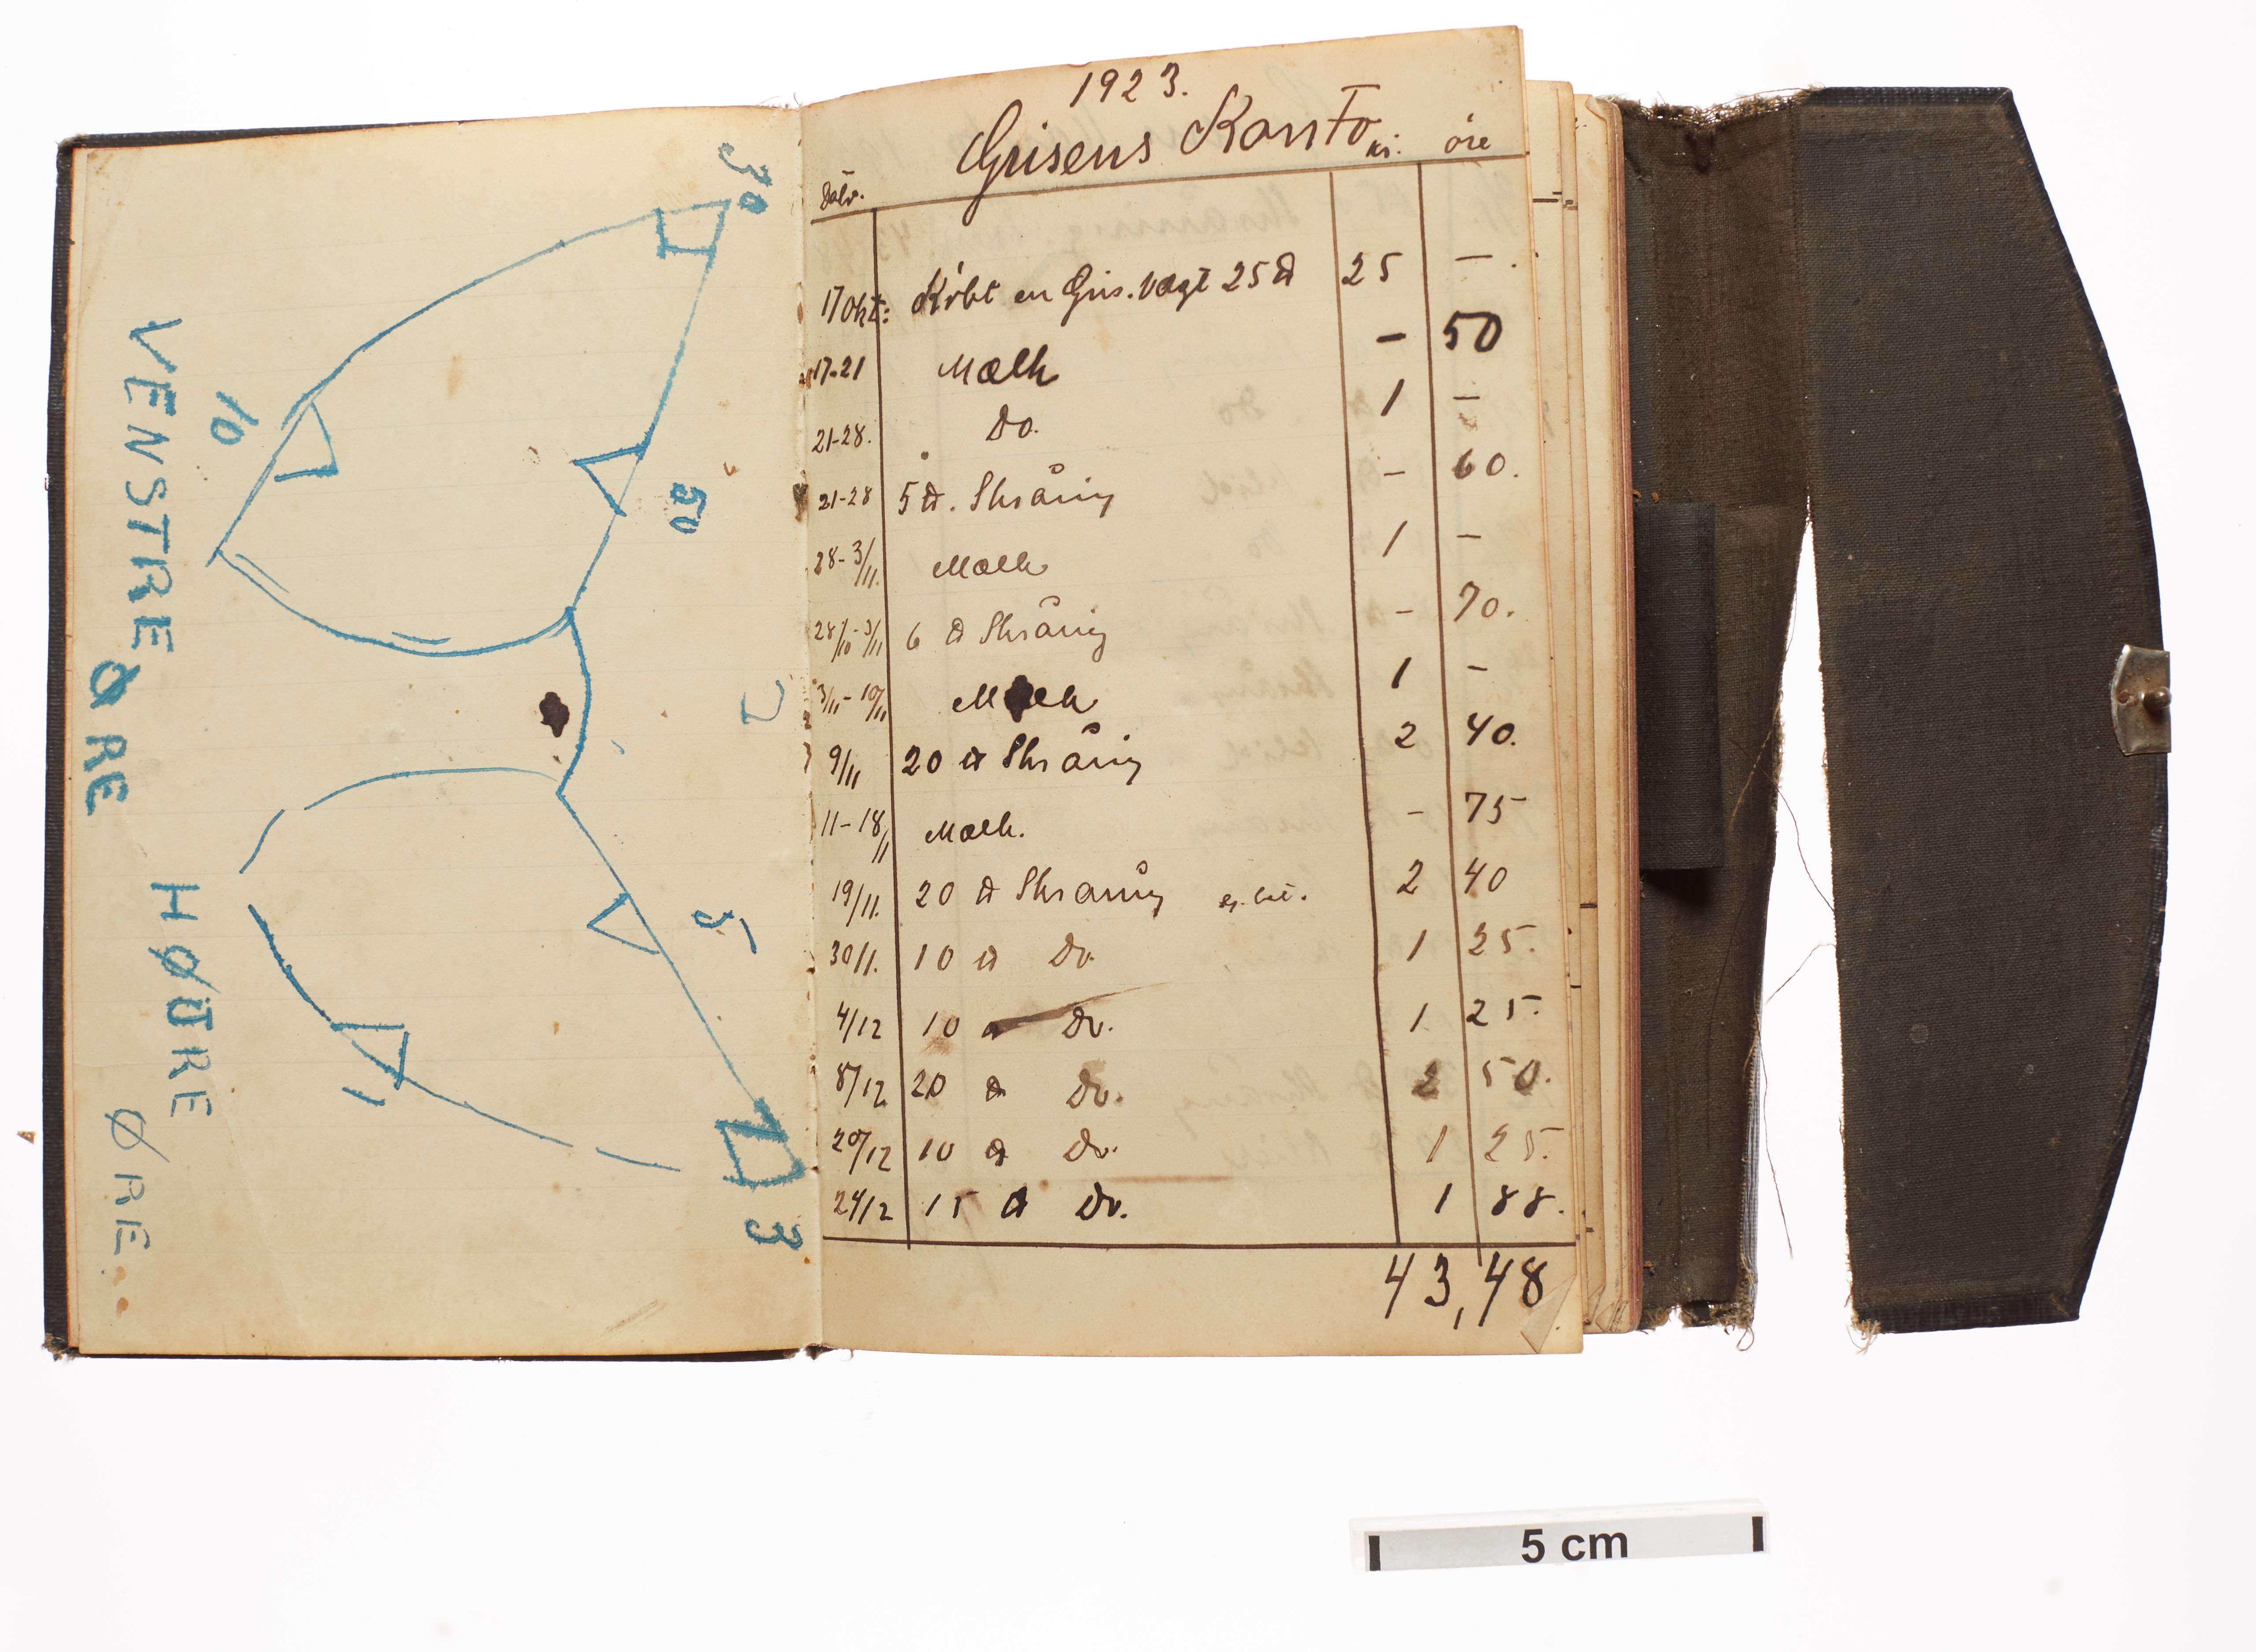 VENSTRE ØRE
HØJRE ØRE
30
10
50
5
1
3
1923.
Grisens Konto
kr. øre
Dato.
17 Okt: Købt en Gris. Vægt 25 ℔ 25 — .
17-21 Mælk — 50
21-28. Do. 1 —
21-28 5 ℔. Skråning — 60.
28-3/11. Mælk 1 —
28/10-3/11 6 ℔ Skråning — 70.
3/11-10/11 Mælk 1 —
9/11 20 ℔ Skråning 2 40.
11-18/11 Mælk. — 75
19/11. 20 ℔ Skråning 2 40
30/11. 10 ℔ Do. 1 25.
4/12 10 ℔ Do. 1 25.
8/12 20 ℔ Do. 2 50.
20/12 10 ℔ Do. 1 25.
24/12 15 ℔ Do. 1 88.
43,48
5 cm